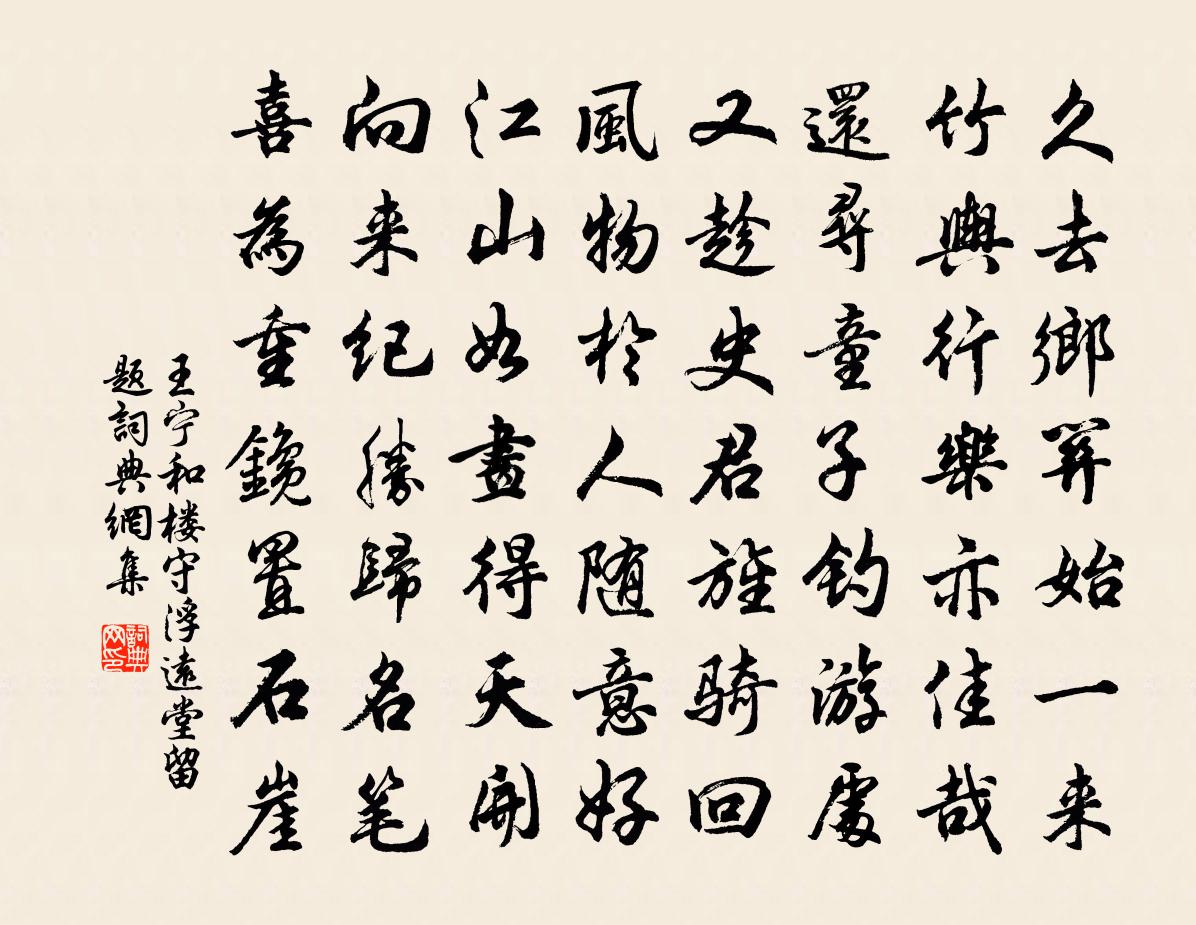 久去鄉關始一来
竹輿行樂亦佳哉
還尋童子釣游處
又趁史君旌騎回
風物於人随意好
江山如畫得天開
向来纪勝歸名笔
喜為重鑱置石崖
王宁和楼守浮遠堂留
题詞典網集
詞典网印